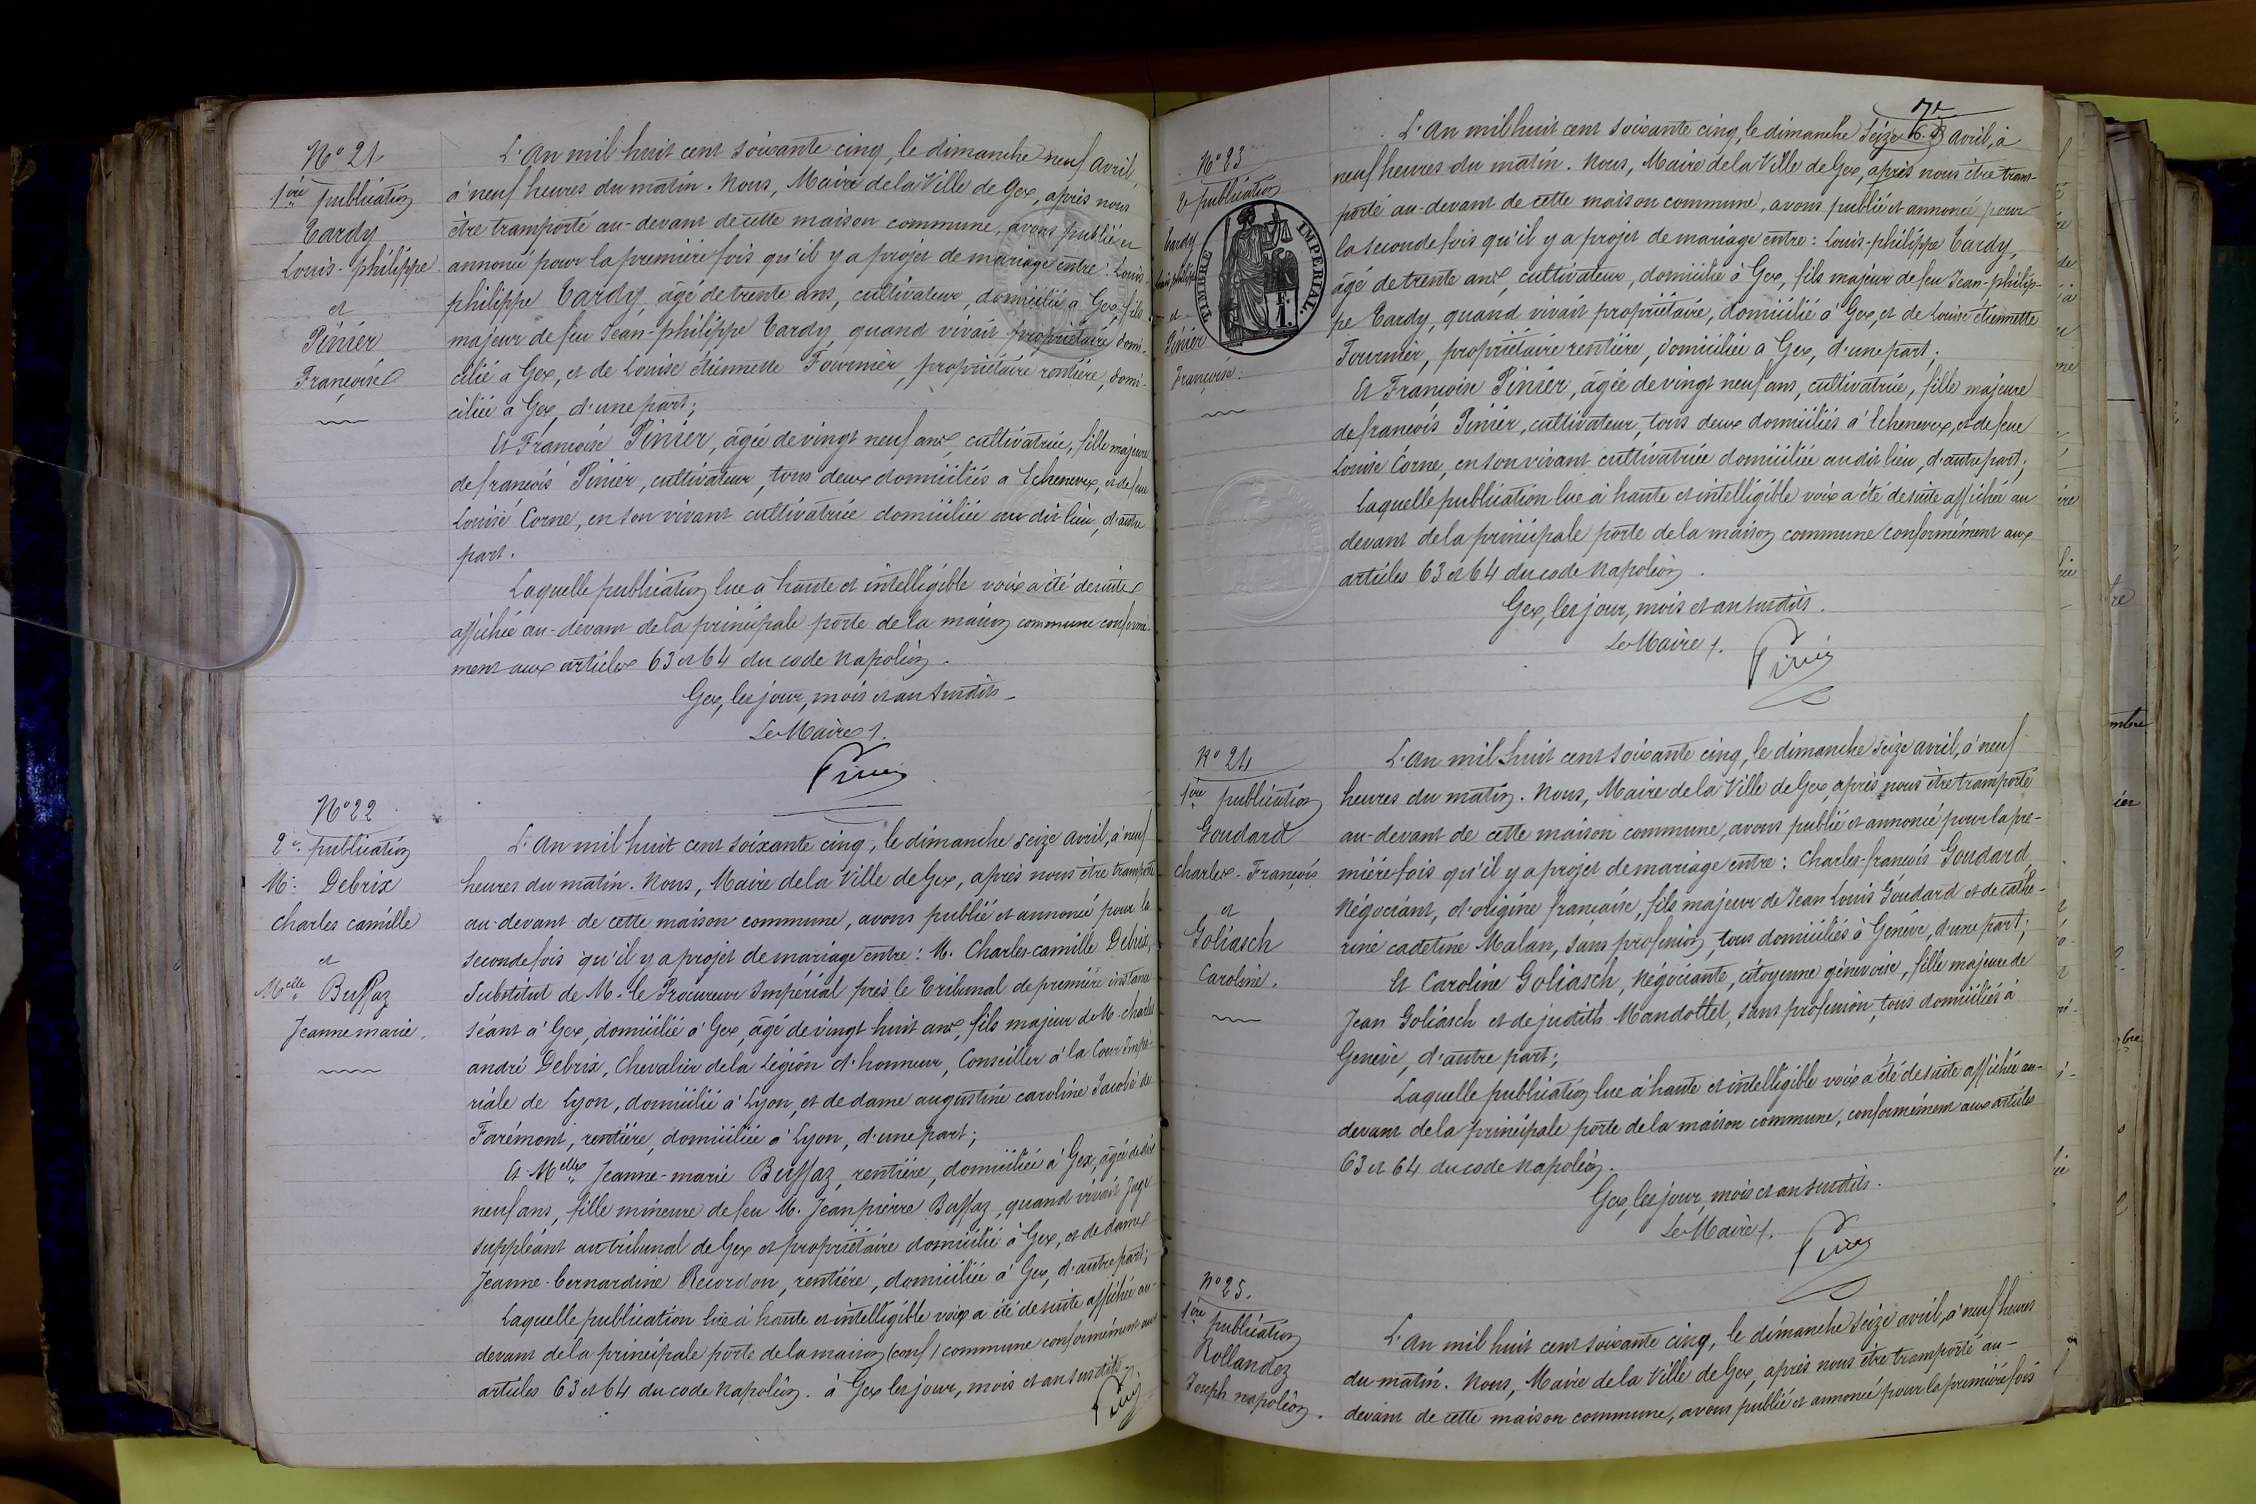 N° 21.
1ère publication
Tardy
Louis-philippe
et
Pinier
Françoise
L'An mil huit cent soixante cinq, le dimanche neuf avril,
à neuf heures du matin. Nous, Maire de la Ville de Gex, après nous
être transporté au-devant de cette maison commune, avons publié et
annoncé pour la première fois qu'il y a projet de mariage entre: Louis-
philippe Tardy, âgé de trente ans, cultivateur, domicilié à Gex, fils
majeur de feu Jean-philippe Tardy, quand vivait propriétaire domi-
cilié à Gex, et de Louise étiennette Fournier, propriétaire rentière, domi-
ciliée à Gex, d'une part;
Et Françoise Pinier, âgée de vingt neuf ans, cultivatrice, fille majeure
de françois Pinier, cultivateur, tous deux domiciliés à Echenevex, et de feue
Louise Corne, en son vivant cultivatrice domiciliée au dit lieu, d'autre
part.
Laquelle publication lue à haute et intelligible voix a été de suite
affichée au-devant de la principale porte de la maison commune conformé-
ment aux articles 63 et 64 du code Napoléon.
Gex, les jour, mois et an susdits.
Le Maire.
N° 22
2e publication
Mr. Debrix
charles camille
et
Melle Buffaz
Jeanne marie.
L'An mil huit cent soixante cinq, le dimanche seize avril, à neuf
heures du matin. Nous, Maire de la Ville de Gex, après nous être transporté
au-devant de cette maison commune, avons publié et annoncé pour la
seconde fois qu'il y a projet de mariage entre: M. Charles-camille Debrix,
Substitut de M. le Procureur Impérial près le Tribunal de première instance
séant à Gex, domicilié à Gex, âgé de vingt huit ans, fils majeur de M. charles
andré Debrix, Chevalier de la Légion d'honneur, Conseiller à la Cour Impé-
riale de Lyon, domicilié à Lyon, et de dame augustine caroline Jacobé de
Farémont, rentière, domiciliée à Lyon, d'une part;
Et Melle Jeanne-marie Buffaz, rentière, domiciliée à Gex, âgée de dix
neuf ans, fille mineure de feu M. Jean pierre Buffaz, quand vivait Juge
suppléant au tribunal de Gex et propriétaire domicilié à Gex, et de dame
Jeanne-bernardine Recordon, rentière, domiciliée à Gex, d'autre part;
Laquelle publication lue à haute et intelligible voix a été de suite affichée au-
devant de la principale porte de la maison (conf) commune conformément aux
articles 63 et 64 du code Napoléon. à Gex les jour, mois et an susdits.
7e
N° 23
2e publication
Tardy
Louis philippe
et
Pinier
Françoise.
TIMBRE IMPÉRIAL.
1 F.
L'An mil huit cent soixante cinq, le dimanche Seize avril, à
neuf heures du matin. Nous, Maire de la Ville de Gex, après nous être trans-
porté au-devant de cette maison commune, avons publié et annoncé pour
la seconde fois qu'il y a projet de mariage entre: Louis-philippe Tardy,
âgé de trente ans, cultivateur, domicilié à Gex, fils majeur de feu Jean-philip-
pe Tardy, quand vivait propriétaire, domicilié à Gex, et de Louise étiennette
Fournier, propriétaire rentière, domiciliée à Gex, d'une part;
Et Françoise Pinier, âgée de vingt neuf ans, cultivatrice, fille majeure
de françois Pinier, cultivateur, tous deux domiciliés à Echenevex, et de feue
Louise Corne, en son vivant cultivatrice domiciliée au dit lieu, d'autre part;
Laquelle publication lue à haute et intelligible voix a été de suite affichée au
devant de la principale porte de la maison commune conformément aux
articles 63 et 64 du code Napoléon.
Gex, les jour, mois et an susdits.
Le Maire.
N° 24
1ère publication
Goudard
Charles-François
et
Goliasch
Caroline.
L'An mil huit cent soixante cinq, le dimanche seize avril, à neuf
heures du matin. Nous, Maire de la Ville de Gex, après nous être transporté
au-devant de cette maison commune, avons publié et annoncé pour la pre-
mière fois qu'il y a projet de mariage entre: Charles-françois Goudard,
Négociant, d'origine française, fils majeur de Jean Louis Goudard et de cathe-
rine cadetine Malan, sans profession, tous domiciliés à Genève, d'une part;
Et Caroline Goliasch, Négociante, citoyenne génevoise, fille majeure de
Jean Goliasch et de judith Mandottel, sans profession, tous domiciliés à
Genève, d'autre part;
Laquelle publication lue à haute et intelligible voix a été de suite affichée au-
devant de la principale porte de la maison commune, conformément aux articles
63 et 64 du code Napoléon.
Gex, les jour, mois et an susdits.
Le Maire.
N° 25.
1ère publication
Rollandez
Joseph napoléon.
L'An mil huit cent soixante cinq, le dimanche seize avril, à neuf heures
du matin. Nous, Maire de la Ville de Gex, après nous être transporté au-
devant de cette maison commune, avons publié et annoncé pour la première fois